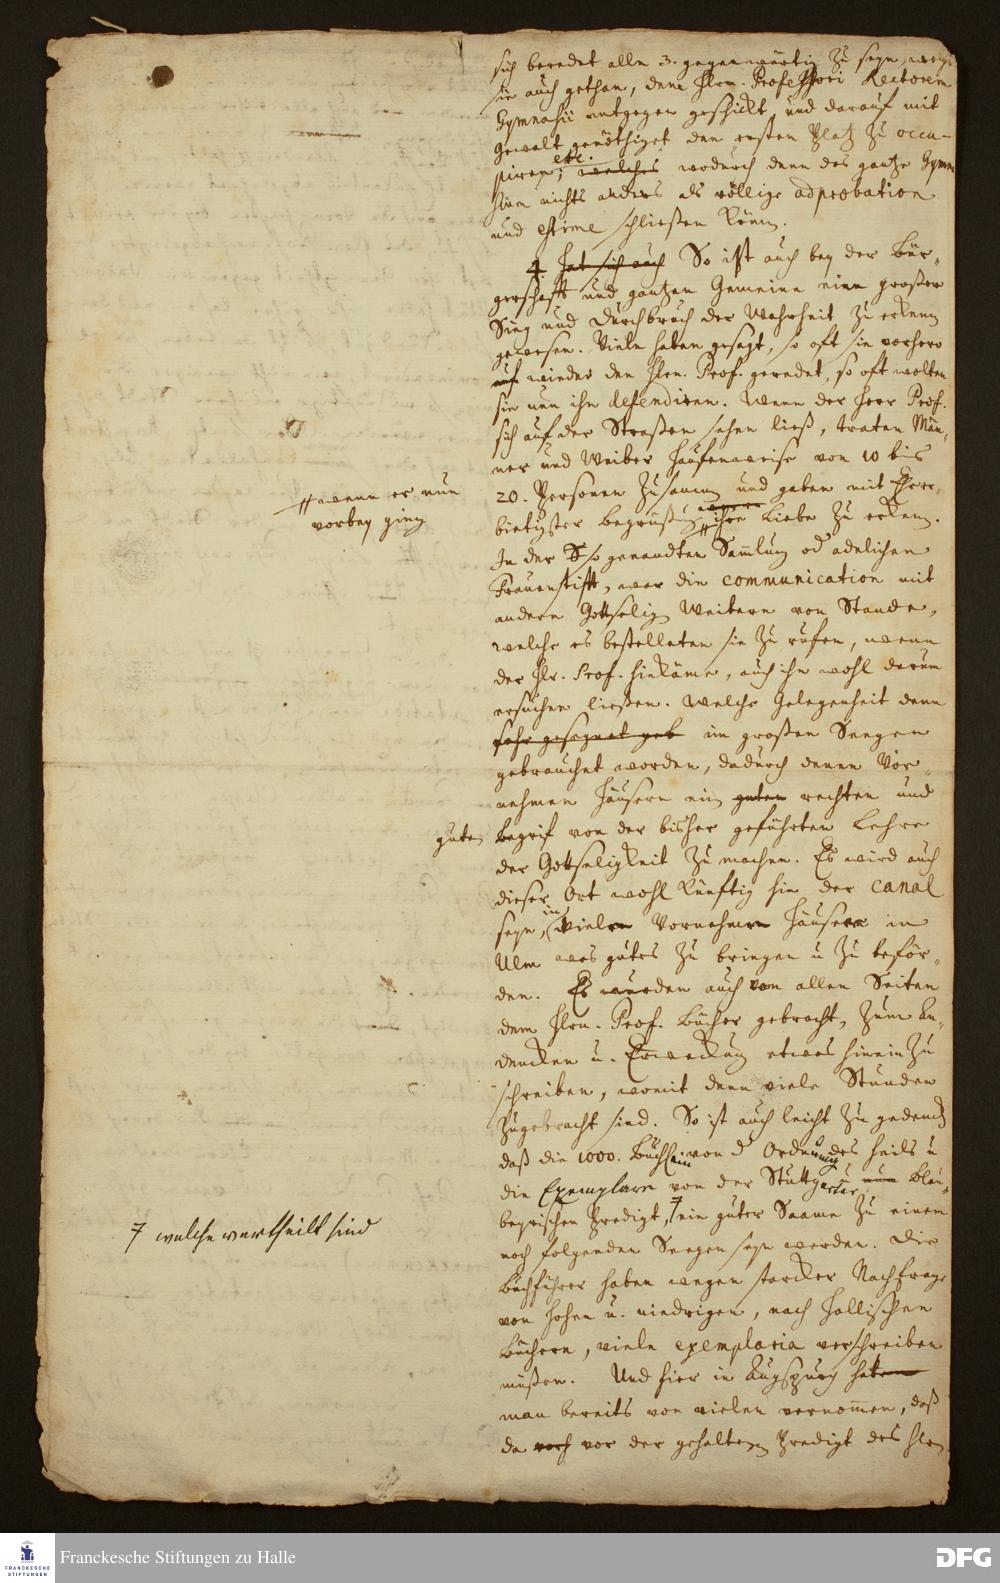 sich beredet alle 3. gegenwärtig zu seyn, welches
sie auch gethan, dem Hrn. Professori Rectorem
Gymnasii entgegen geschickt und darauf mit
Gewalt genöthiget den ersten Platz zu occu-
piren, etc. welches wodurch denn das gantze Gymna
sium nichts anders als völlige adprobation
und estime schließen können.
4. Hat sich auch So ist auch bey der Bür-
gerschafft und gantzen Gemeine ein großer
Sieg und Durchbruch der Wahrheit zu erkennen
gewesen. Viele haben gesagt, so oft sie vorhero
wieder den Hrn. Prof. geredet, so oft wolten
sie nun ihn defendiren. Wenn der Herr Prof.
sich auf der Straßen sehen ließ, traten Män-
ner und Weiber Haufenweise von 10 bis
20. Personen zusammen und gaben mit Ehrer-
bietigster Begrüßung ihre Liebe zu erkennen.
# wenn er nun
vorbey ging
In der So genandten Sammlung od adelichen
Frauenstifft, war die communication mit
andern Gottseligen Weibern von Stande,
welche es bestelleten sie zu rufen, wenn
der Hr. Prof. hinkäme, auch ihn wohl darum
ersuchen ließen. Welche Gelegenheit denn
sehr gesegnet im großen Seegen
gebrauchet worden, dadurch denen Vor-
nehmen Häusern ein guten rechten und
guten Begrif von der bisher geführten Lehre
der Gottseligkeit zu machen. Es wird auch
dieser Ort wohl künftig hin der canal
seyn, in viele Vornehme Häuser in
Ulm was gutes zu bringen u zu beför-
den. Es wurden auch von allen Seiten
dem Hrn. Prof. Bücher gebracht, zum An-
dencken u. Erweckung etwas hinein zu
schreiben, womit denn viele Stunden
zugebracht sind. So ist auch leicht zu gedencken
daß die 1000. Büchlein von d Ordnung des Heils u
die Exemplare von der Stuttgarter u nun Blau-
beyrischen Predigt, ⌐ ein guter Saame zu einem
⌐ welche vertheilt sind
noch folgenden Seegen seyn werden. Die
Buchführer haben wegen starcker Nachfrage
von Hohen u. niedrigen, nach Hallischen
Büchern, viele exemplaria verschreiben
müßen. Und hier in Augspurg haben
man bereits von vielen vernommen, daß
da noch vor der gehaltenen Predigt des Hrn
Franckesche Stiftungen zu Halle
FRANCKESCHE
STIFTUNGEN
DFG